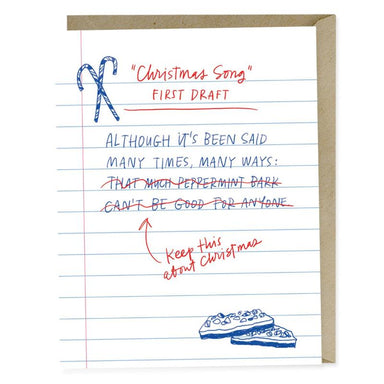 "Christmas Song"
FIRST DRAFT
ALTHOUGH IT'S BEEN SAID
MANY TIMES, MANY WAYS:
THAT MUCH PEPPERMINT BARK
CAN'T BE GOOD FOR ANYONE.
Keep this
about Christmas